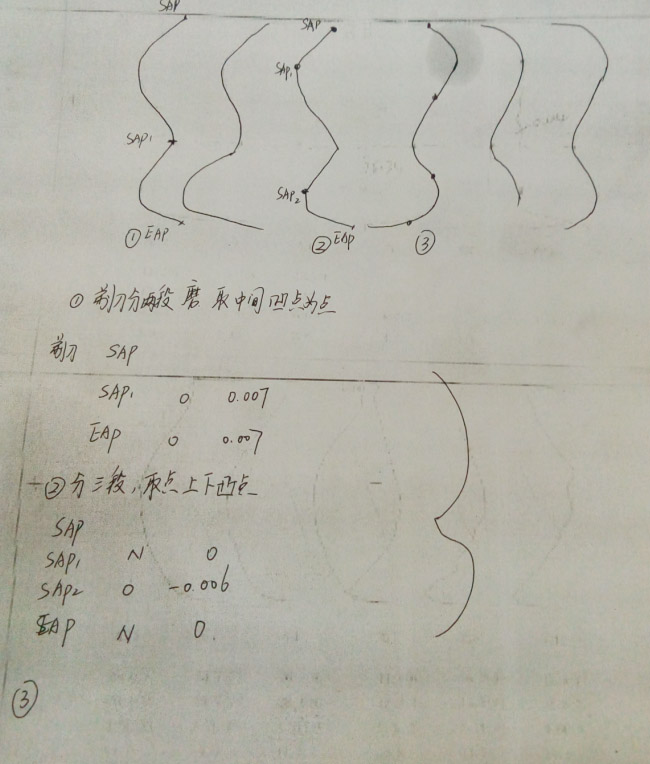 SAP SAP
SAP₁
SAP₁
SAP₂
① EAP ② EAP ③
① 剃刀分两段 磨 取中间凹点为点
剃刀 SAP
SAP₁ 0 0.007
EAP 0 0.007
② 分三段,取点上下凹点
SAP
SAP₁ N 0
SAP2 0 -0.006
EAP N 0.
③